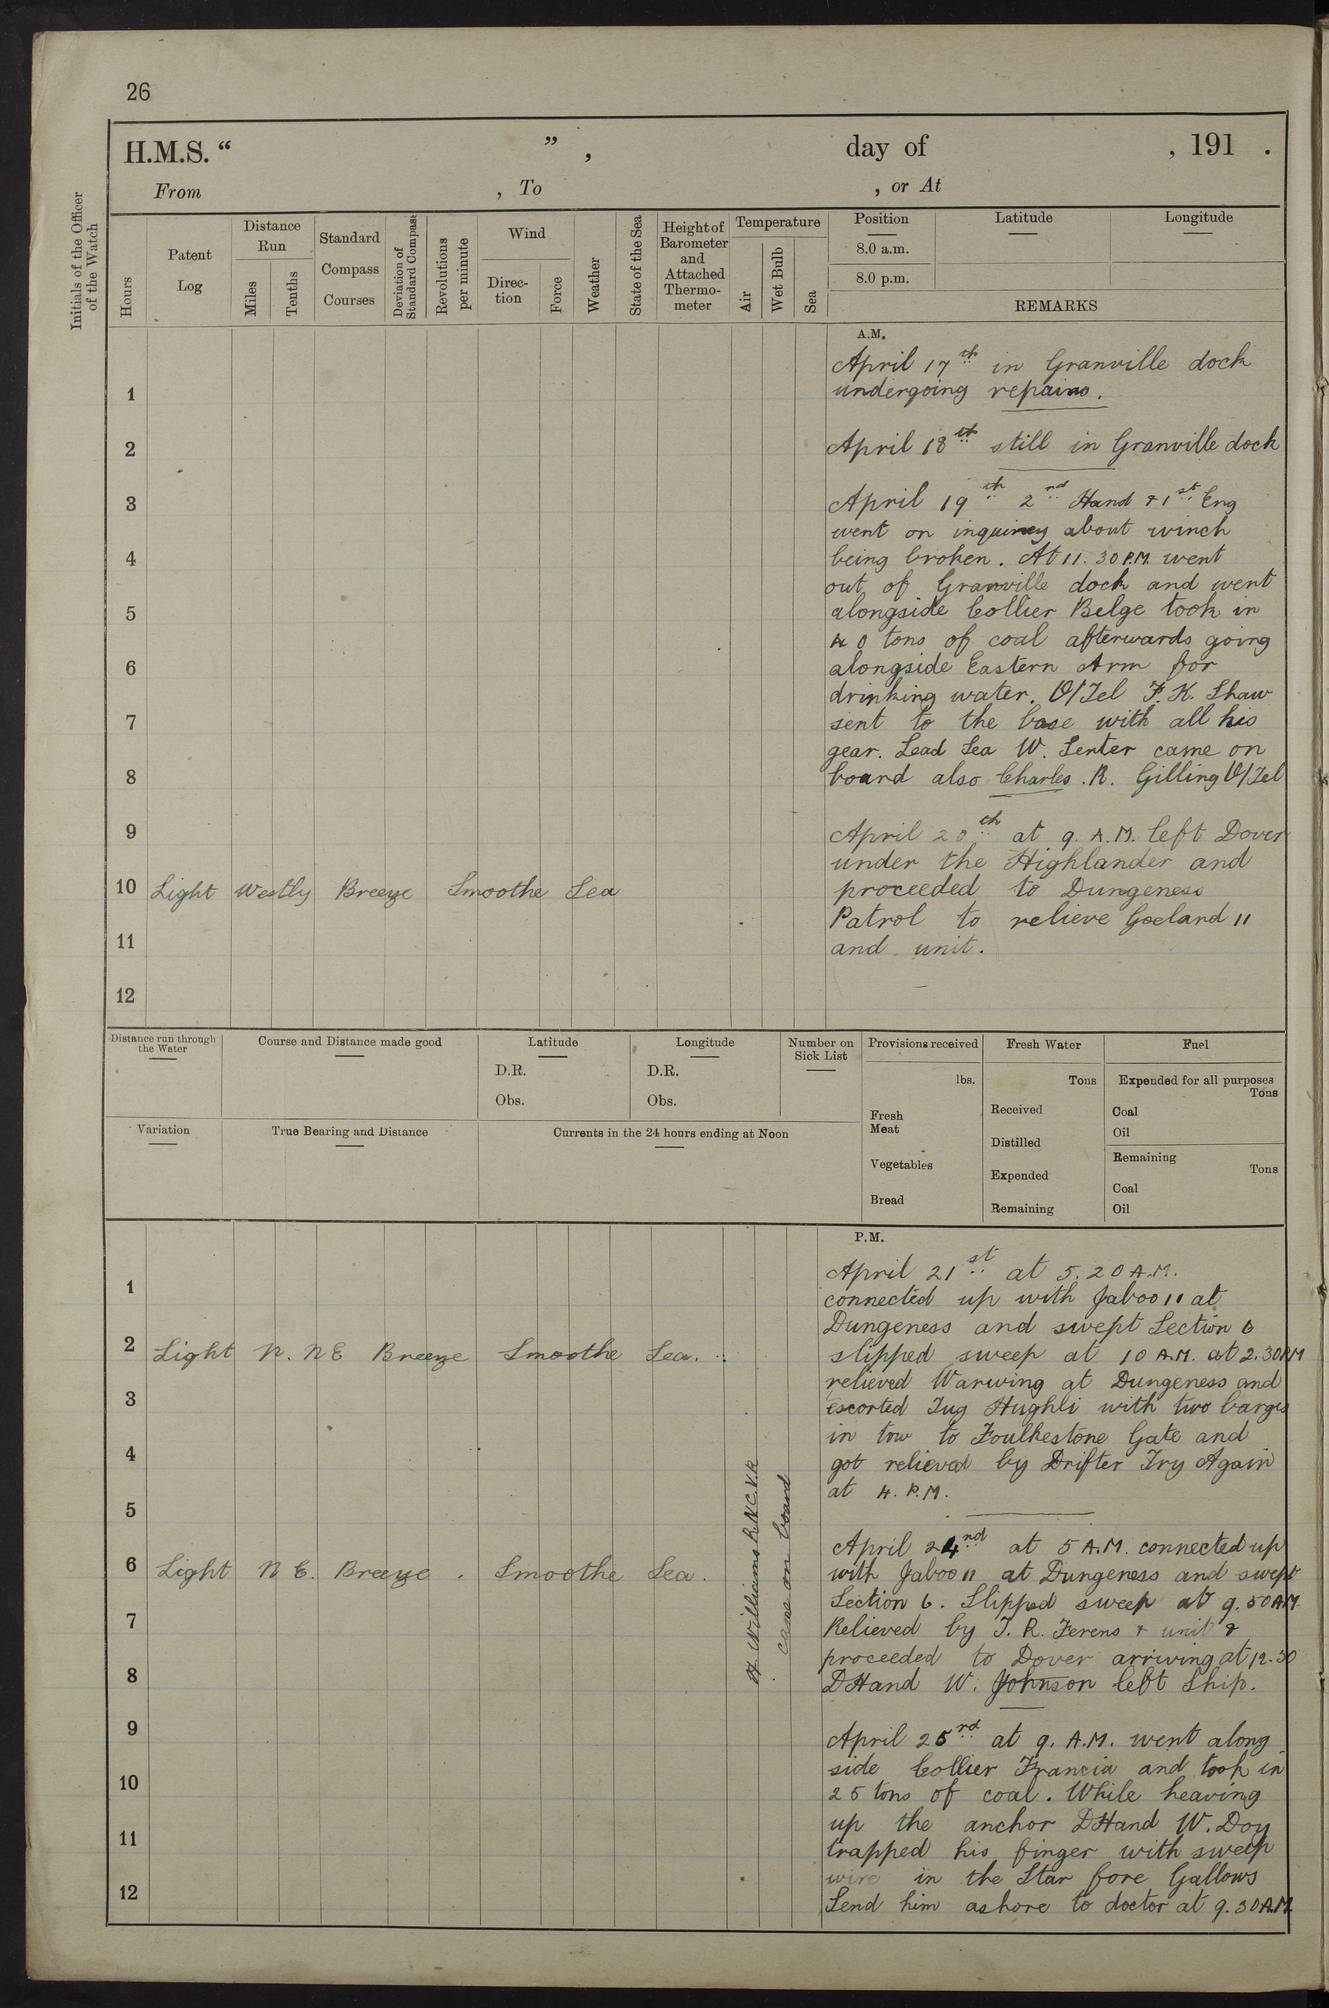 26
H.M.S. “ ” , day of , 191 .
From , To , or At
Initials of the Officer of the Watch
Hours
Patent Log
Distance Run
Miles
Tenths
Standard Compass Courses
Deviation of Standard Compass
Revolutions per minute
Wind
Direc-tion
Force
Weather
State of the Sea
Height of Barometer and Attached Thermo-meter
Temperature
Air
Wet Bulb
Sea
Position
8.0 a.m.
8.0 p.m.
Latitude
Longitude
REMARKS
A.M.
April 17th in Granville dock
1 undergoing repairs.
2 April 18th still in Granville dock
3 April 19th 2nd Hand & 1st Eng
went on inquirey about winch
4 being broken. At 11.30 P.M. went
out of Granville dock and went
5 alongside Collier Belge took in
40 tons of coal afterwards going
6 alongside Eastern Arm for
drinking water. O/Tel F. K. Shaw
7 sent to the base with all his
gear. Lead Sea W. Senter came on
8 board also Charles . R. Gilling O/Tel
9 April 20th at 9. A.M. left Dover
under the Highlander and
10 Light Westly Breeze Smoothe Sea proceeded to Dungeness
Patrol to relieve Goeland II
11 and unit.
12
Distance run through the Water
Course and Distance made good
Latitude
D.R.
Obs.
Longitude
D.R.
Obs.
Number on Sick List
Provisions received
lbs.
Fresh Meat
Vegetables
Bread
Fresh Water
Tons
Received
Distilled
Expended
Remaining
Fuel
Expended for all purposes
Tons
Coal
Oil
Remaining
Tons
Coal
Oil
Variation
True Bearing and Distance
Currents in the 24 hours ending at Noon
P.M.
April 21st at 5.20 A.M.
1 connected up with Jaboo II at
Dungeness and swept Section 6
2 Light N. NE Breeze Smoothe Sea. slipped sweep at 10 A.M. at 2.30 PM
relieved Warwing at Dungeness and
3 escorted Tug Hughli with two barges
in tow to Foulkestone Gate and
4 got relieved by Drifter Try Again
at 4. P.M.
5
April 24nd at 5 A.M. connected up
6 Light N E. Breeze . Smoothe Sea. with Jaboo II at Dungeness and swept
Section 6. Slipped sweep at 9.50 A.M.
7 Relieved by T. R. Ferens & unit &
proceeded to Dover arriving at 12.30
8 DHand W. Johnson left Ship.
Williams R.N.C.V.R
came on board
9 April 25rd at 9. A.M. went along
side Collier Francia and took in
10 25 tons of coal. While heaving
up the anchor DHand W. Doy
11 trapped his finger with sweep
wire in the Star fore Gallows
12 Send him ashore to doctor at 9.30 A.M.